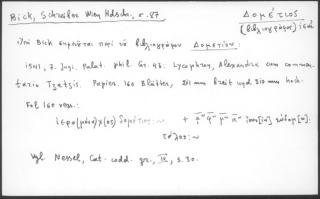 Bick, Schreiber Wien Hdschr., σ. 87.
Δομέτιος
(βιβλιογράφος) 15αἰ
Ὑπὸ Bick σημειοῦται περὶ τοῦ βιβλιογράφου Δομετίου:
1541, 7. Juni, Palat. phil. Gr. 93: Lycophron, Alexandra cum commen-
tario Tzetzis. Papier. 160 Blätter, 211 mm breit und 310 mm hoch.
Fol 160 verso:
ἱερο(μόνα)χ(ος) δομέτιος:~
τέλος:~
Vgl. Nessel, Cat. codd. gr., IV, S. 30.